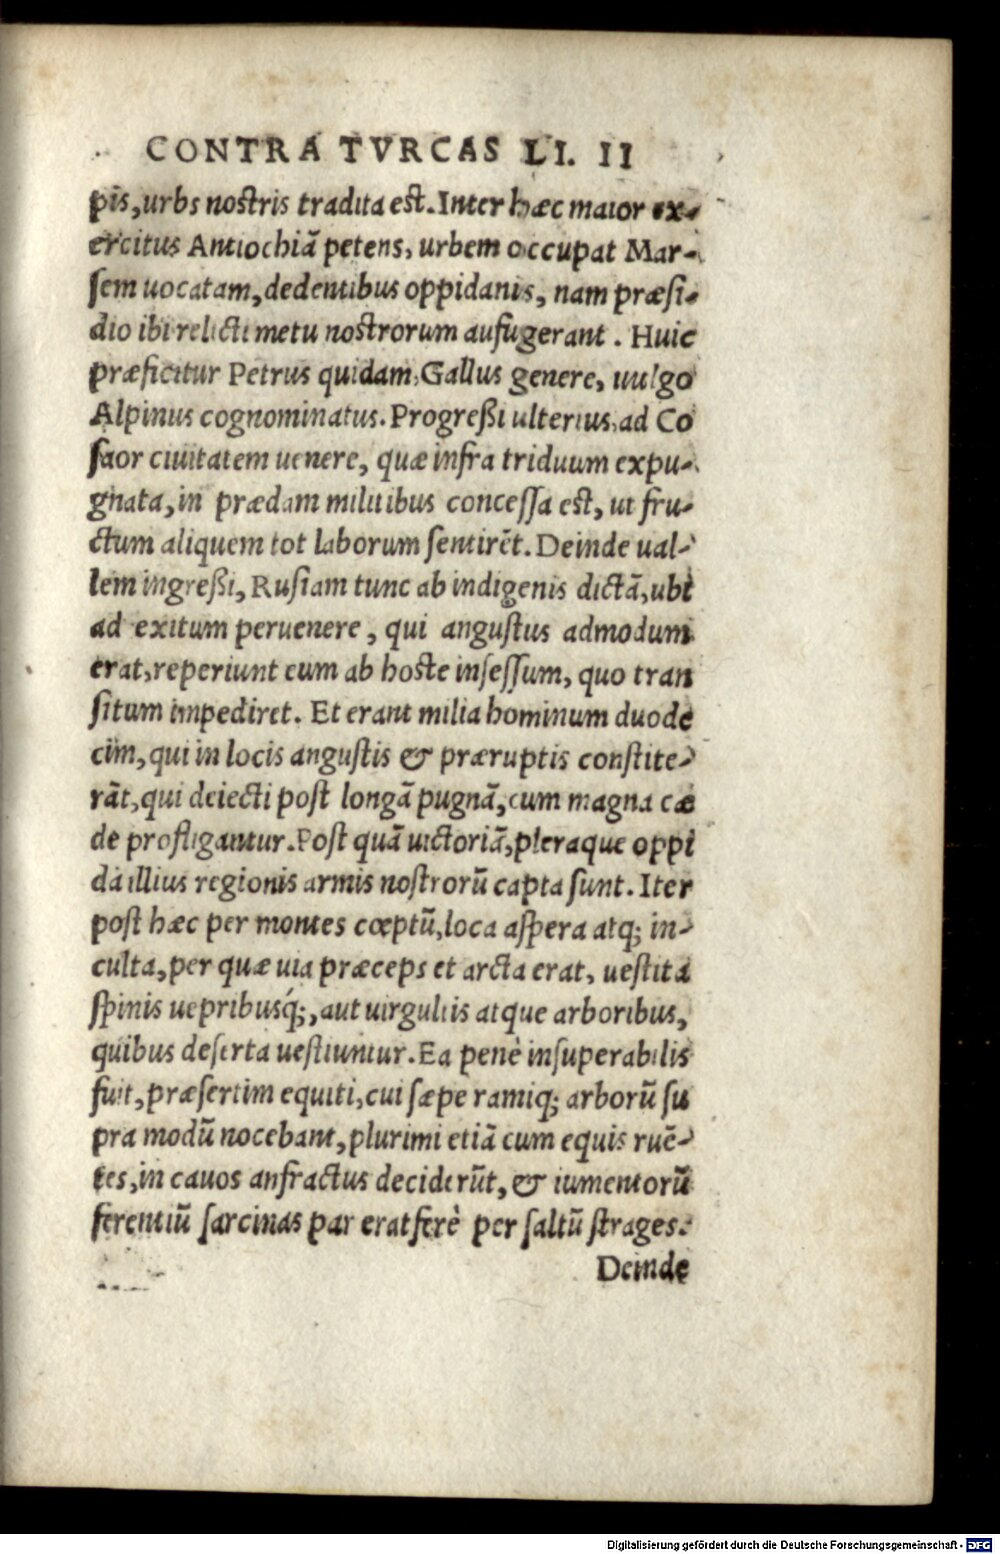 CONTRA TVRCAS LI. II
pis, urbs nostris tradita est. Inter hæc maior ex-
ercitus Antiochiã petens, urbem occupat Mar-
sem uocatam, dedentibus oppidanis, nam præsi-
dio ibi relicti metu nostrorum aufugerant. Huic
præficitur Petrus quidam, Gallus genere, uulgo
Alpinus cognominatus. Progreßi ulterius, ad Co
saor ciuitatem uenere, quæ infra triduum expu-
gnata, in prædam militibus concessa est, ut fru-
ctum aliquem tot laborum sentirẽt. Deinde ual-
lem ingreßi, Rusiam tunc ab indigenis dictã, ubi
ad exitum peruenere, qui angustus admodum
erat, reperiunt eum ab hoste insessum, quo tran
situm impediret. Et erant milia hominum duode
cim, qui in locis angustis & præruptis constite-
rãt, qui deiecti post longã pugnã, cum magna cæ
de profligantur. Post quã uictoriã, pleraque oppi
da illius regionis armis nostrorũ capta sunt. Iter
post hæc per montes cœptũ, loca aspera atq; in-
culta, per quæ uia præceps et arcta erat, uestita
spinis uepribusq́;, aut uirgultis atque arboribus,
quibus deserta uestiuntur. Ea penè insuperabilis
fuit, præsertim equiti, cui sæpe ramiq; arborũ su
pra modũ nocebant, plurimi etiã cum equis ruẽ-
tes, in cauos anfractus deciderũt, & iumentorũ
ferentiũ sarcinas par erat ferè per saltũ strages.
Deinde
Digitalisierung gefördert durch die Deutsche Forschungsgemeinschaft - DFG